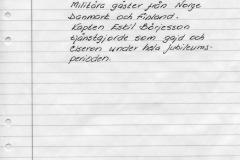 Militära gäster från Norge
Danmark och Finland.
Kapten Eskil Börjesson
tjänstgjorde som guid och
ciseron under hela jubileums-
perioden.